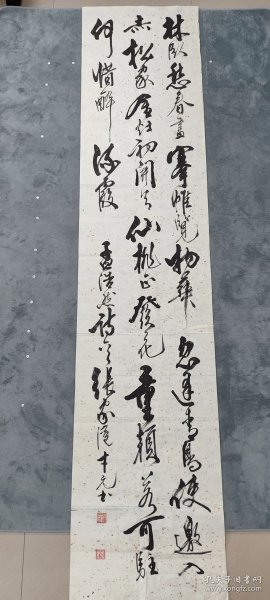 林卧愁春盡搴帷覽物華忽逢青鳥使邀入
赤松家金灶初開火仙桃正發花童顏若可駐
何惜醉流霞 孟浩然詩 張家港
孔夫子旧书网